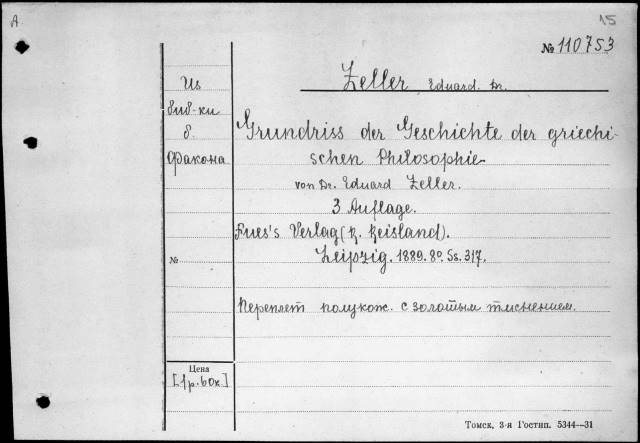 А
15
№ 110753
Zeller Eduard. Dr.
Из
биб-ки
б.
Факона
Grundriss der Geschichte der griechi-
schen Philosophie
von Dr. Eduard Zeller.
3 Auflage.
Fues's Verlag (R. Reisland).
№
Leipzig. 1889. 8º. Ss. 317.
Переплет полукож. с золотым тиснением.
Цена
[1 р. 60 к.]
Томск, 3-я Гостип. 5344—31